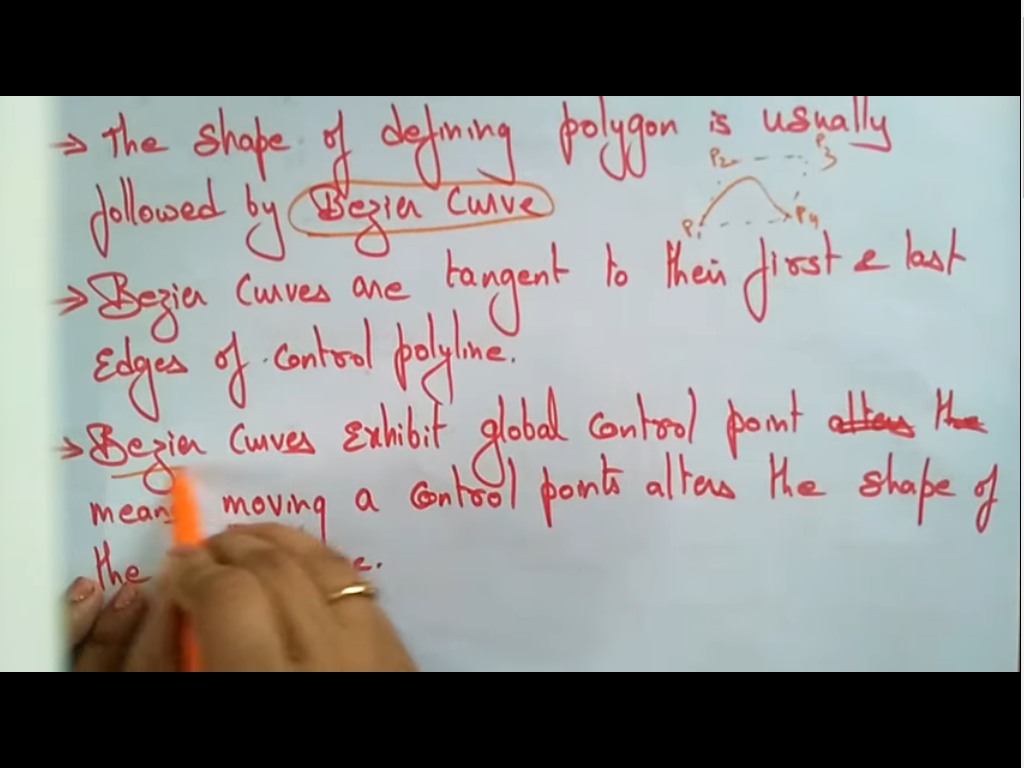 → The shape of defining polygon is usually
followed by Bezier Curve
P2 P3
P1 P4
→ Bezier Curves are tangent to their first & last
Edges of control polyline.
→ Bezier Curves Exhibit global control point alters the
means moving a control points alters the shape of
the